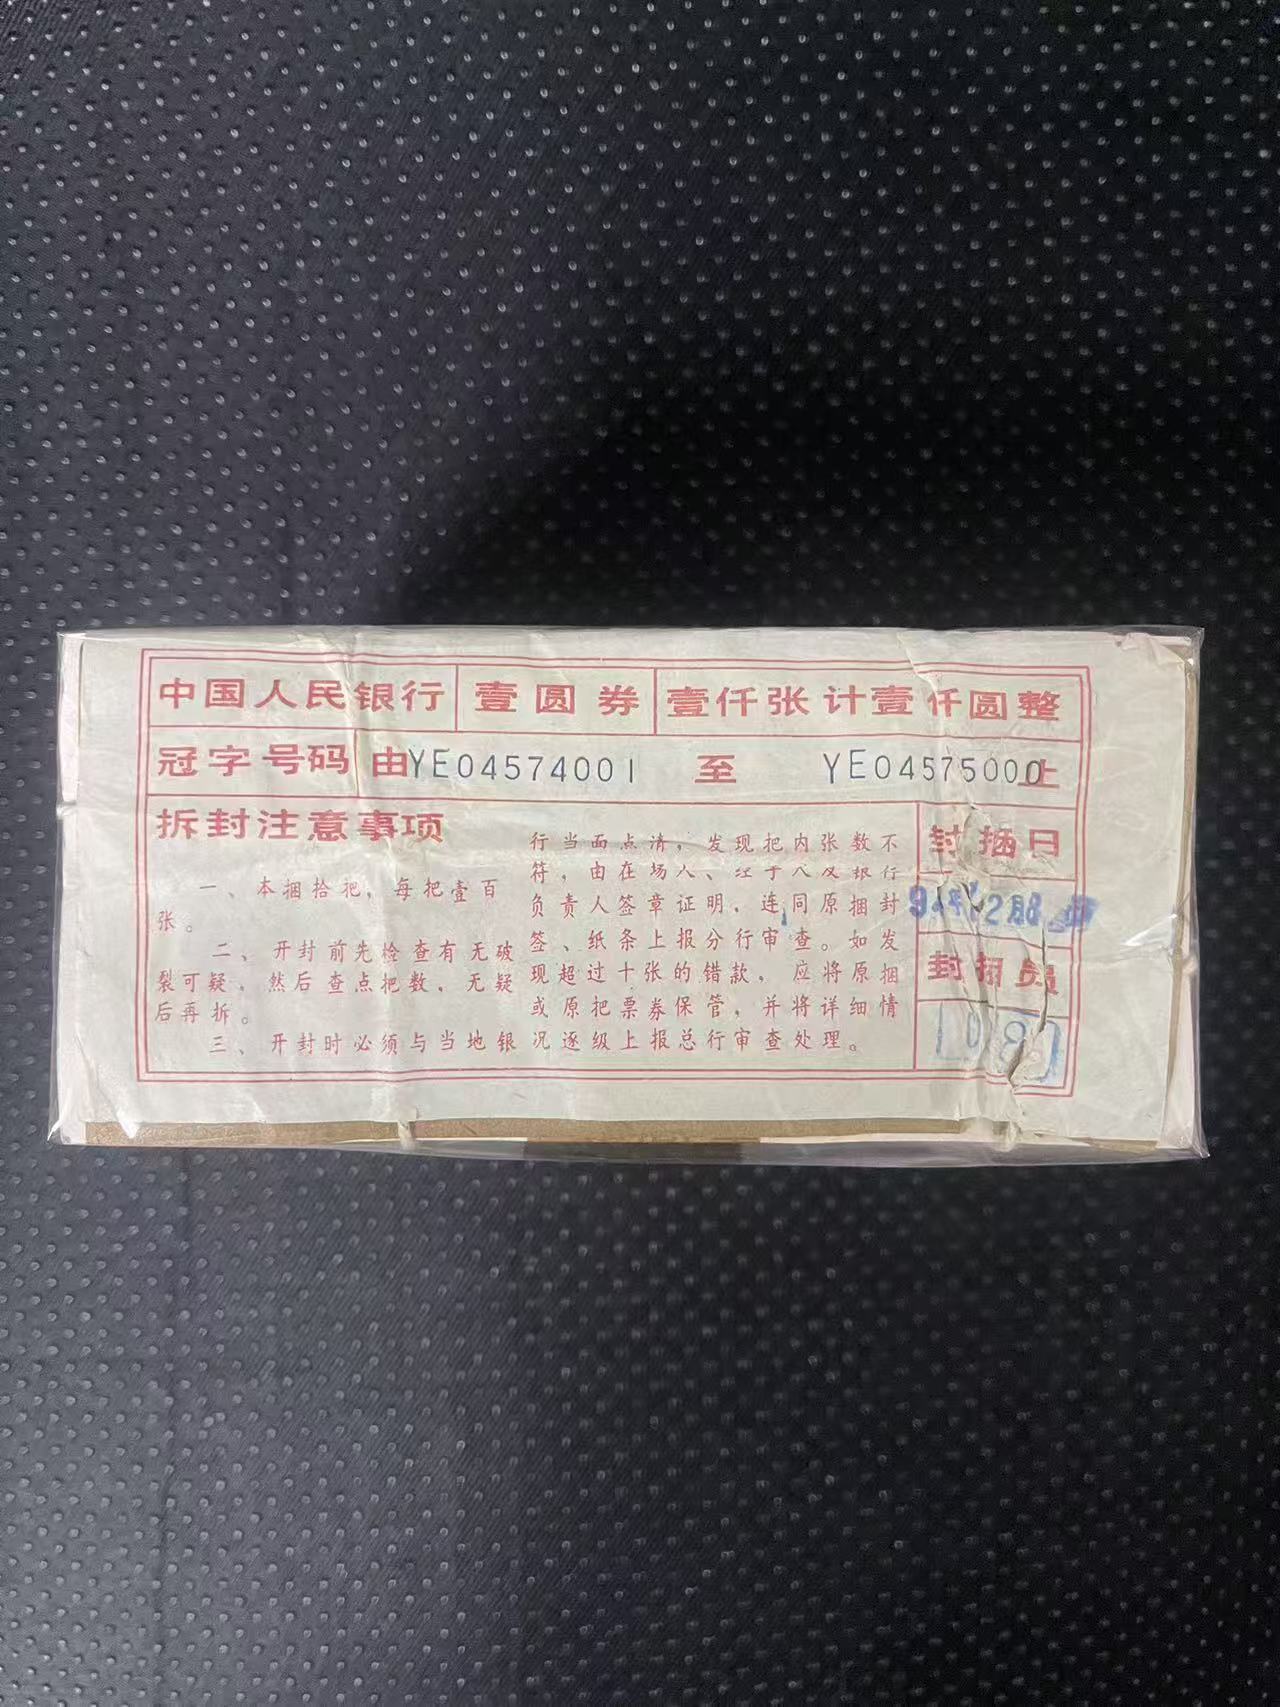 中国人民银行 壹圆券 壹仟张计壹仟圆整
冠字号码 由YE04574001 至 YE04575000止
拆封注意事项
一、本捆拾把，每把壹百
张。
二、开封前先检查有无破
裂可疑，然后查点把数，无疑
后再拆。
三、开封时必须与当地银
行当面点清，发现把内张数不
符，由在场人、经手人及银行
负责人签章证明，连同原捆封
签、纸条上报分行审查。如发
现超过十张的错款，应将原捆
或原把票券保管，并将详细情
况逐级上报总行审查处理。
封捆日
封捆员